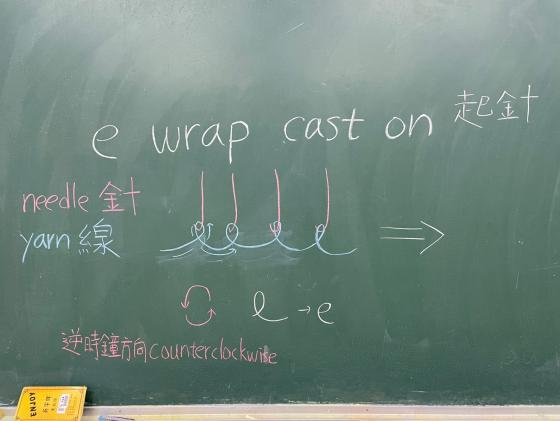 e wrap cast on 起針
needle 針
yarn 線
l → e
逆時鐘方向counterclockwise
ENJOY